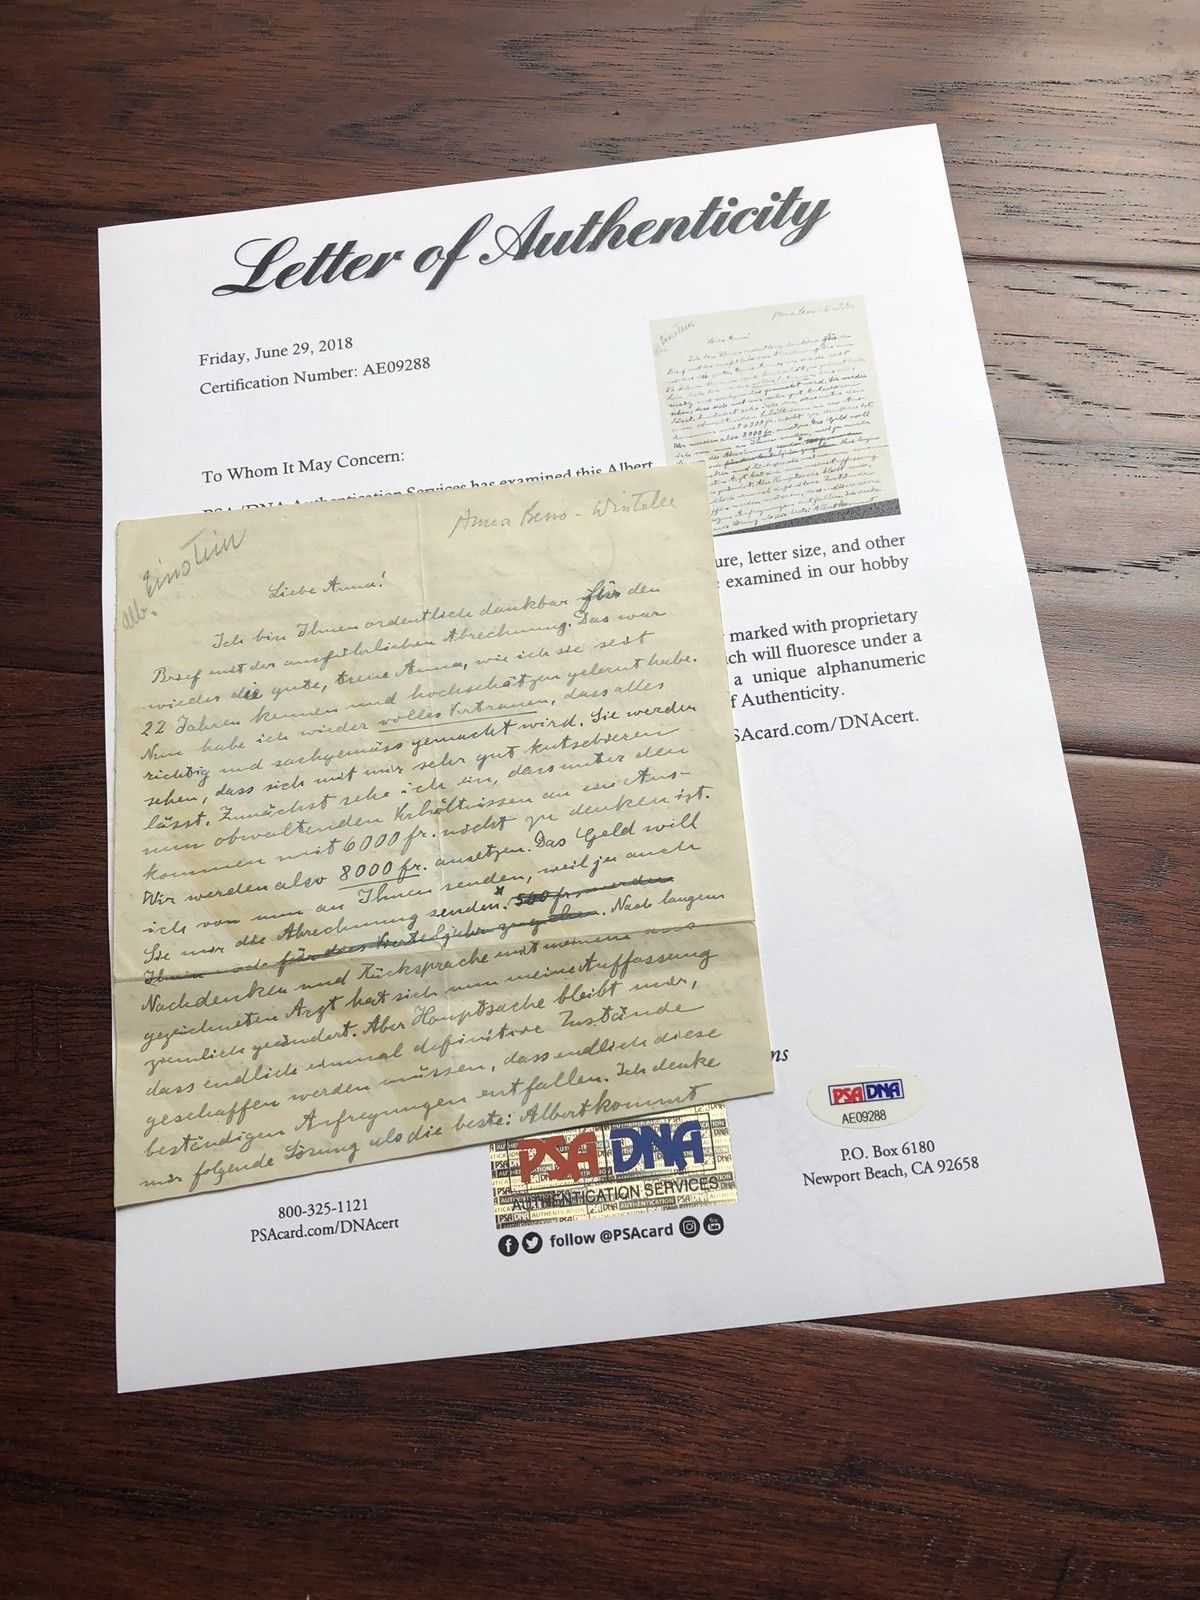 Letter of Authenticity
Friday, June 29, 2018
Certification Number: AE09288
To Whom It May Concern:
PSA/DNA Authentication Services has examined this Albert
ure, letter size, and other
examined in our hobby
marked with proprietary
ch will fluoresce under a
a unique alphanumeric
f Authenticity.
SAcard.com/DNAcert.
alb. Einstein
Anna Beso - Winteler
Liebe Anna!
Ich bin Ihnen ordentlich dankbar für den
Brief mit der ausführlichen Abrechnung. Das war
wieder die gute, treue Anna, wie ich sie seit
22 Jahren kennen und hochschätzen gelernt habe.
Nun habe ich wieder volles Vertrauen, dass alles
richtig und sachgemäss gemacht wird. Sie werden
sehen, dass sich mit mir sehr gut kutschieren
lässt. Zunächst sehe ich ein, dass unter den
nun obwaltenden Verhältnissen an ein Aus-
kommen mit 6000 fr. nicht zu denken ist.
Wir werden also 8000 fr. ansetzen. Das Geld will
ich von nun an Ihnen senden, weil ja auch
Sie mir die Abrechnung senden. 500 fr. werden
Ihnen oder für das Vierteljahr zugehen. Nach langem
Nachdenken und Rücksprache mit meinem aus
gezeichneten Arzt hat sich nun meine Auffassung
ziemlich geändert. Aber Hauptsache bleibt mir,
dass endlich einmal definitive Zustände
geschaffen werden müssen, dass endlich diese
beständigen Aufregungen entfallen. Ich denke
mir folgende Lösung als die beste: Albert kommt
ns
PSA DNA
AE09288
PSA DNA
AUTHENTICATION SERVICES
P.O. Box 6180
Newport Beach, CA 92658
800-325-1121
PSAcard.com/DNAcert
follow @PSAcard